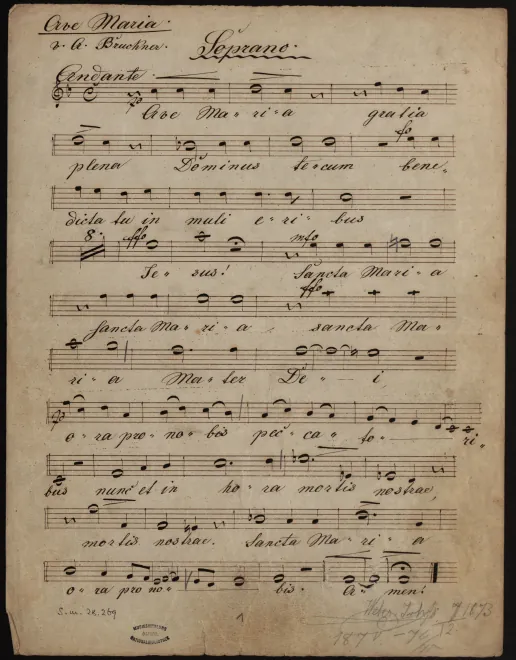 Ave Maria.
v. A. Bruckner.
Soprano.
Andante.
po
Ave Ma-ri-a gratia
fo
plena Dominus te-cum bene-
dicta tu in muli-e-ri-bus
8. fffo mfo
Je-sus! Sancta Mari-a
ffo
sancta Ma-ri-a sancta Ma-
ri-a Ma-ter De-i,
po
o-ra pro-no-bis pec-ca-to-ri-
bus nunc et in ho-ra mortis nostrae,
mortis nostrae. Sancta Ma-ri-a
o-ra pro no-bis. A-men!
S.m. 28,269
1